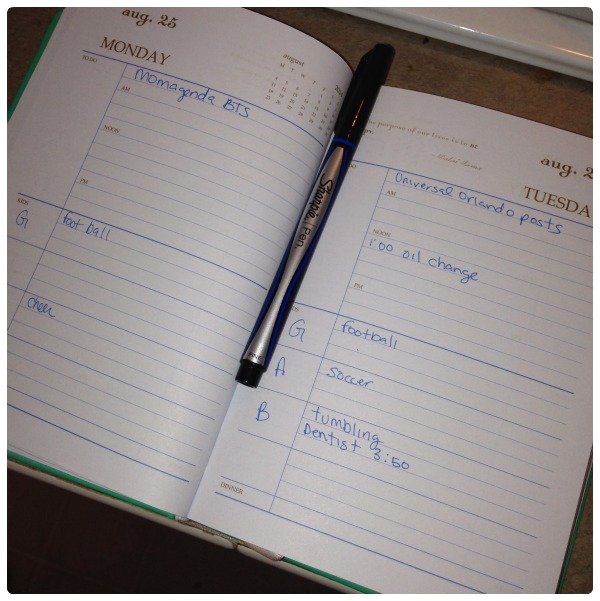 aug. 25
MONDAY
august
TO DO
Momagenda BTS
AM
NOON
PM
KIDS
G
football
cheer
DINNER
Sharpie Pen
purpose of our lives is to BE
aug. 2
TUESDA
Universal Orlando posts
AM
NOON
1:00 oil change
PM
G
football
A
soccer
B
tumbling
Dentist 3:50
DINNER